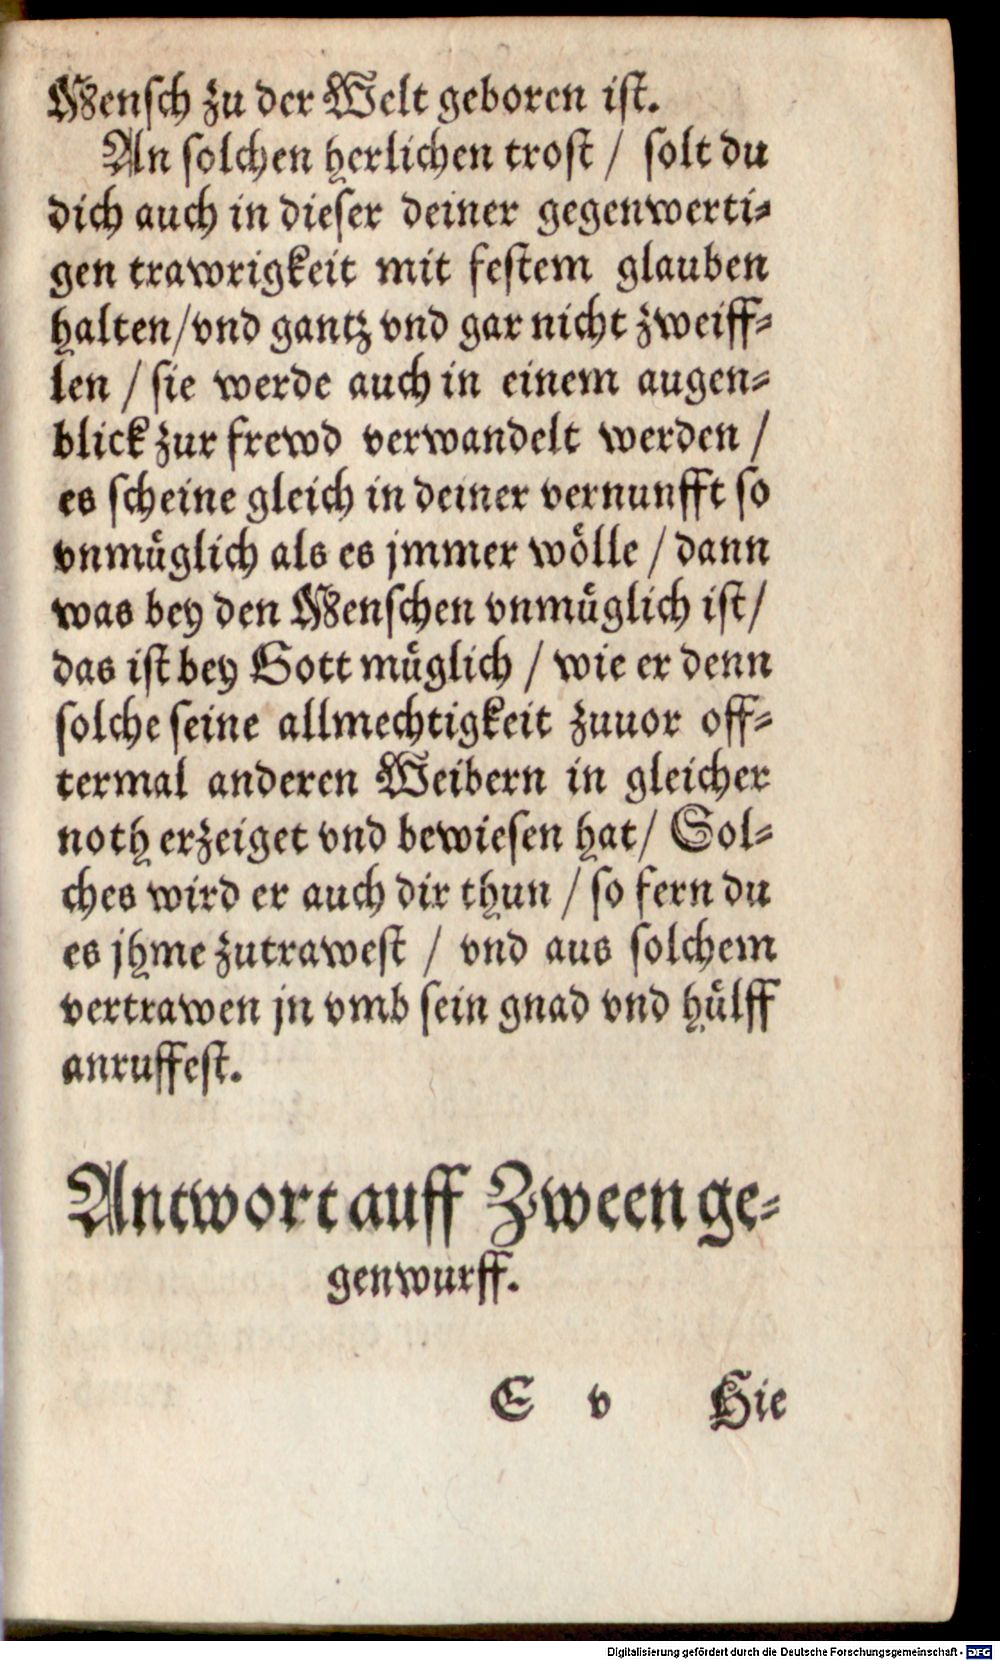 Mensch zu der Welt geboren ist.
An solchen herlichen trost / solt du
dich auch in dieser deiner gegenwerti-
gen trawrigkeit mit festem glauben
halten/vnd gantz vnd gar nicht zweiff-
len / sie werde auch in einem augen-
blick zur frewd verwandelt werden /
es scheine gleich in deiner vernunfft so
vnmüglich als es jmmer wölle / dann
was bey den Menschen vnmüglich ist/
das ist bey Gott müglich / wie er denn
solche seine allmechtigkeit zuuor off-
termal anderen Weibern in gleicher
noth erzeiget vnd bewiesen hat/ Sol-
ches wird er auch dir thun / so fern du
es jhme zutrawest / vnd aus solchem
vertrawen jn vmb sein gnad vnd hülff
anruffest.
Antwort auff Zween ge-
genwurff.
E v Hie
Digitalisierung gefördert durch die Deutsche Forschungsgemeinschaft - DFG